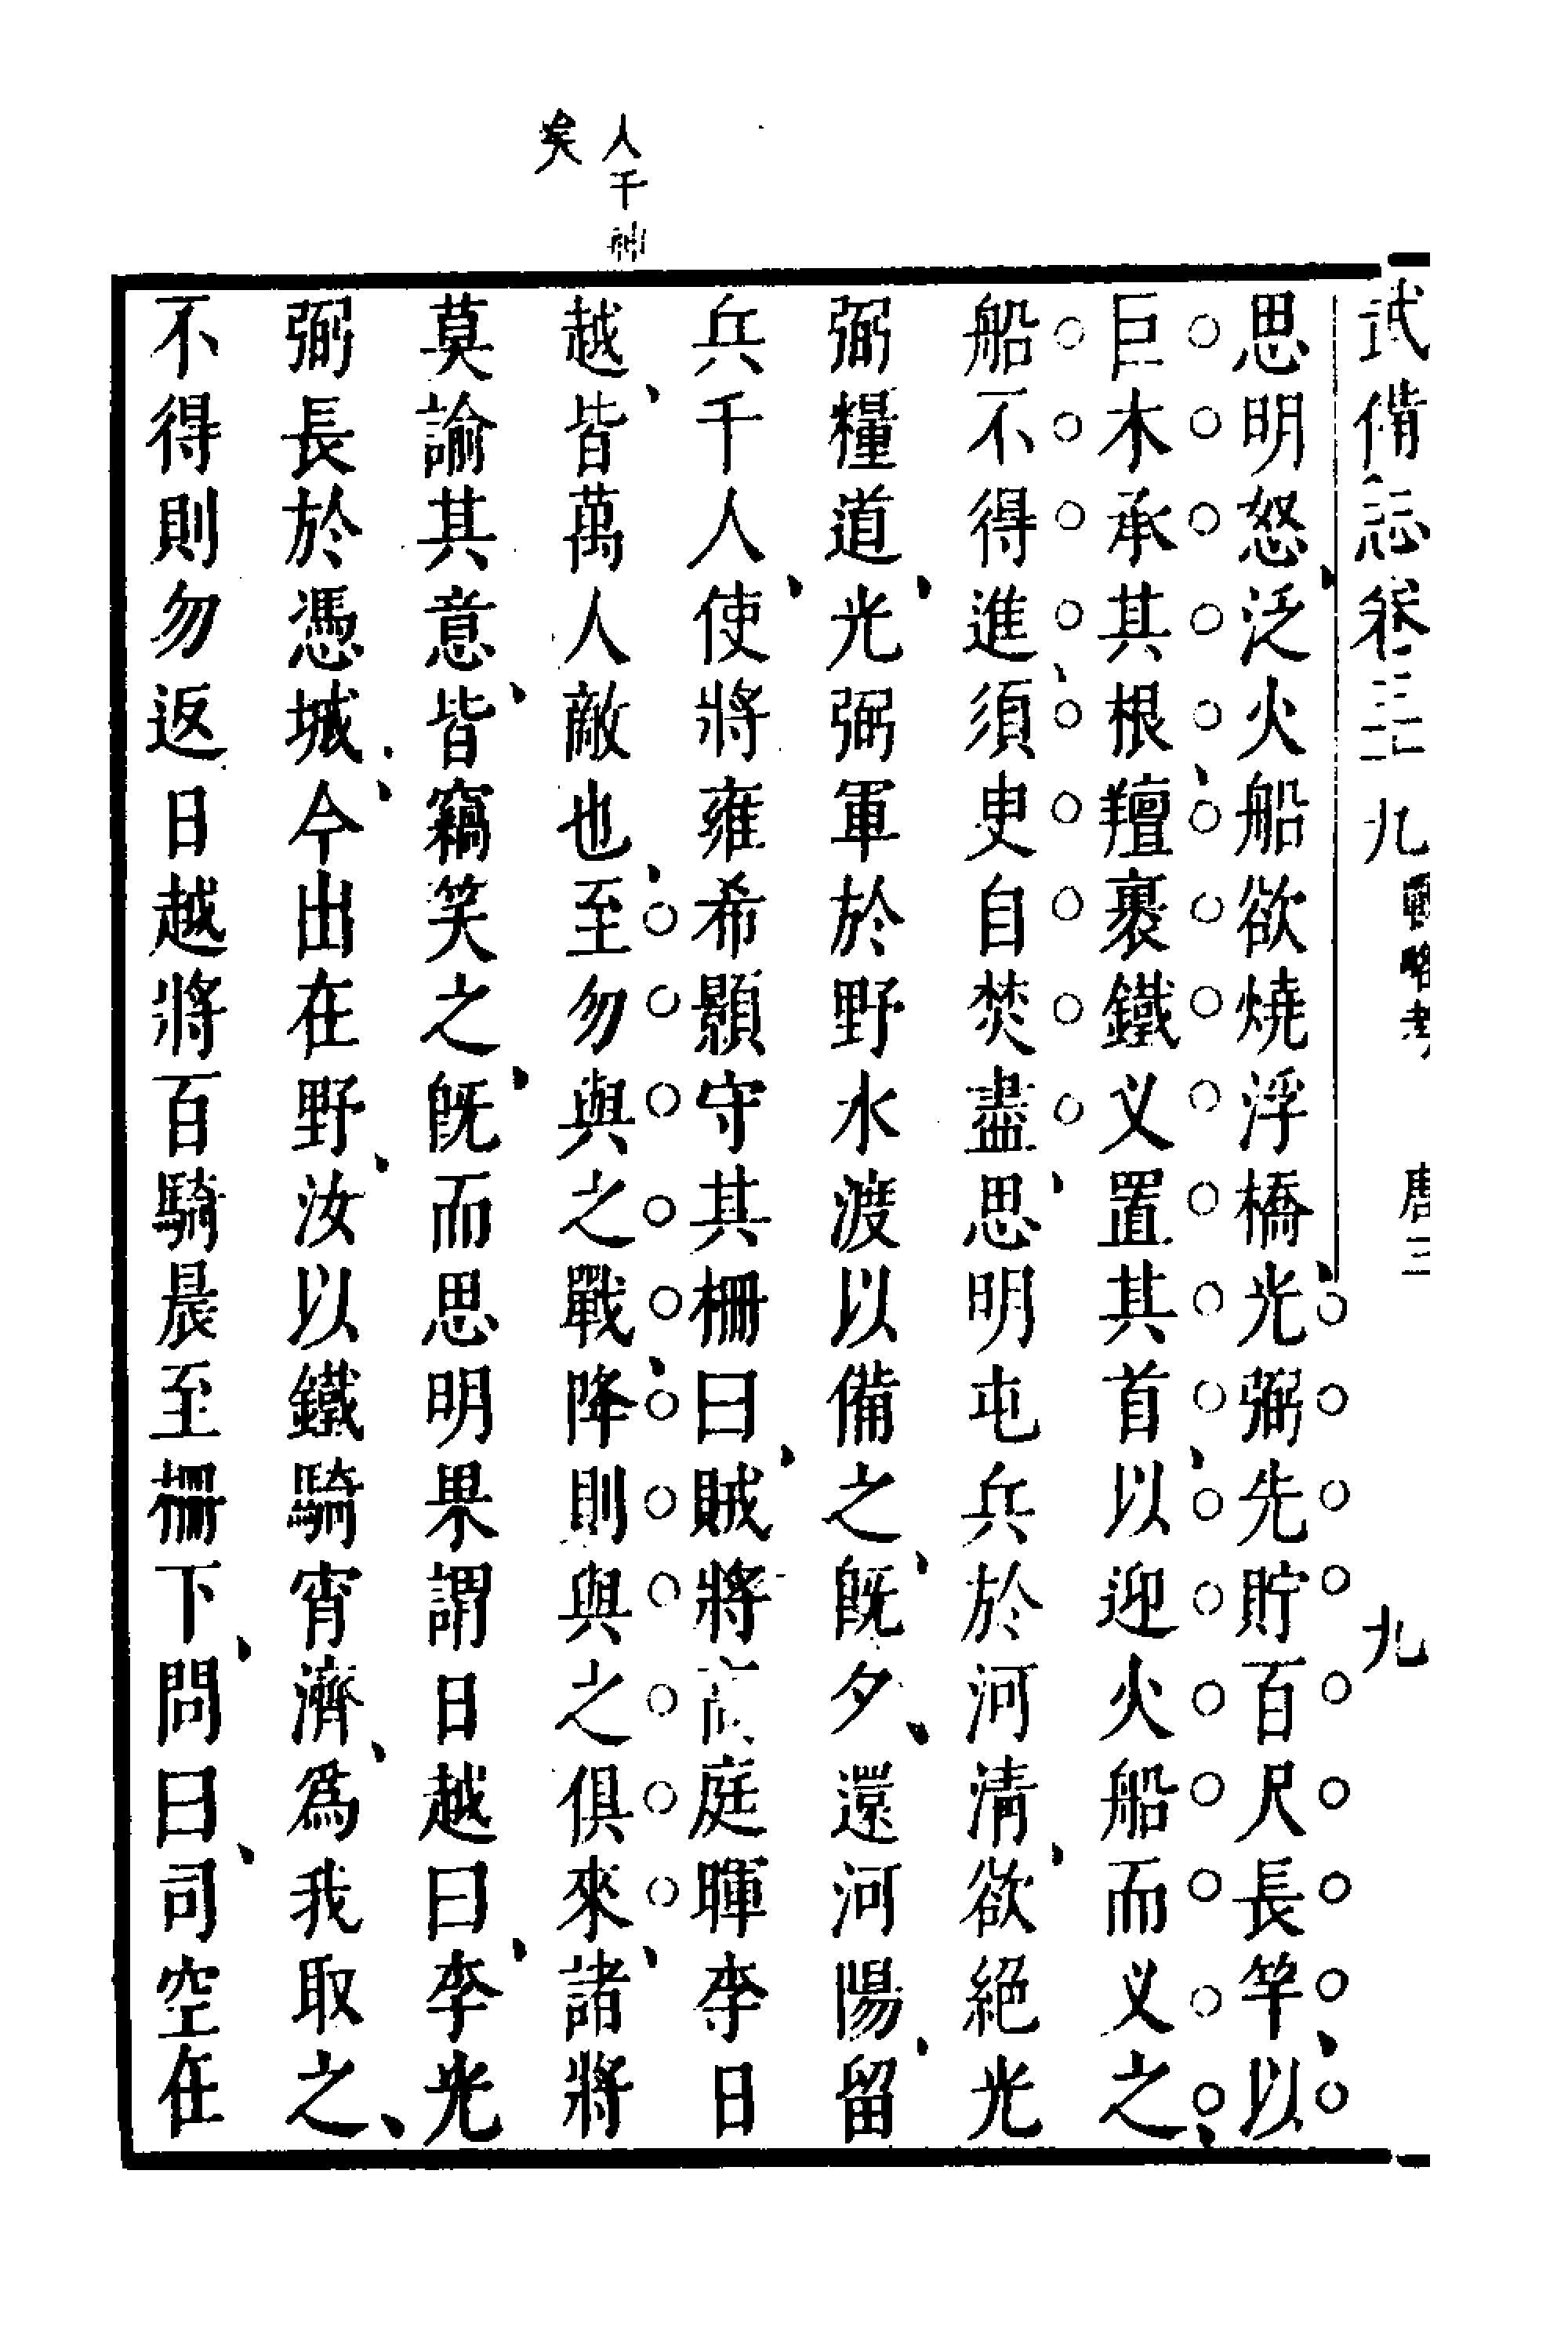 武備志卷三十九 戰略考 唐三 九
思明怒泛火船欲燒浮橋光弼先貯百尺長竿以
巨木承其根氊裹鐵义置其首以迎火船而义之
船不得進須臾自焚盡思明屯兵於河清欲絕光
弼糧道光弼軍於野水渡以備之旣夕還河陽留
兵千人使將雍希顥守其柵曰賊將高庭暉李日
越皆萬人敵也至勿與之戰降則與之俱來諸將
莫諭其意皆竊笑之旣而思明果謂日越曰李光
弼長於憑城今出在野汝以鐵騎宵濟爲我取之
不得則勿返日越將百騎晨至柵下問曰司空在
人千神
矣